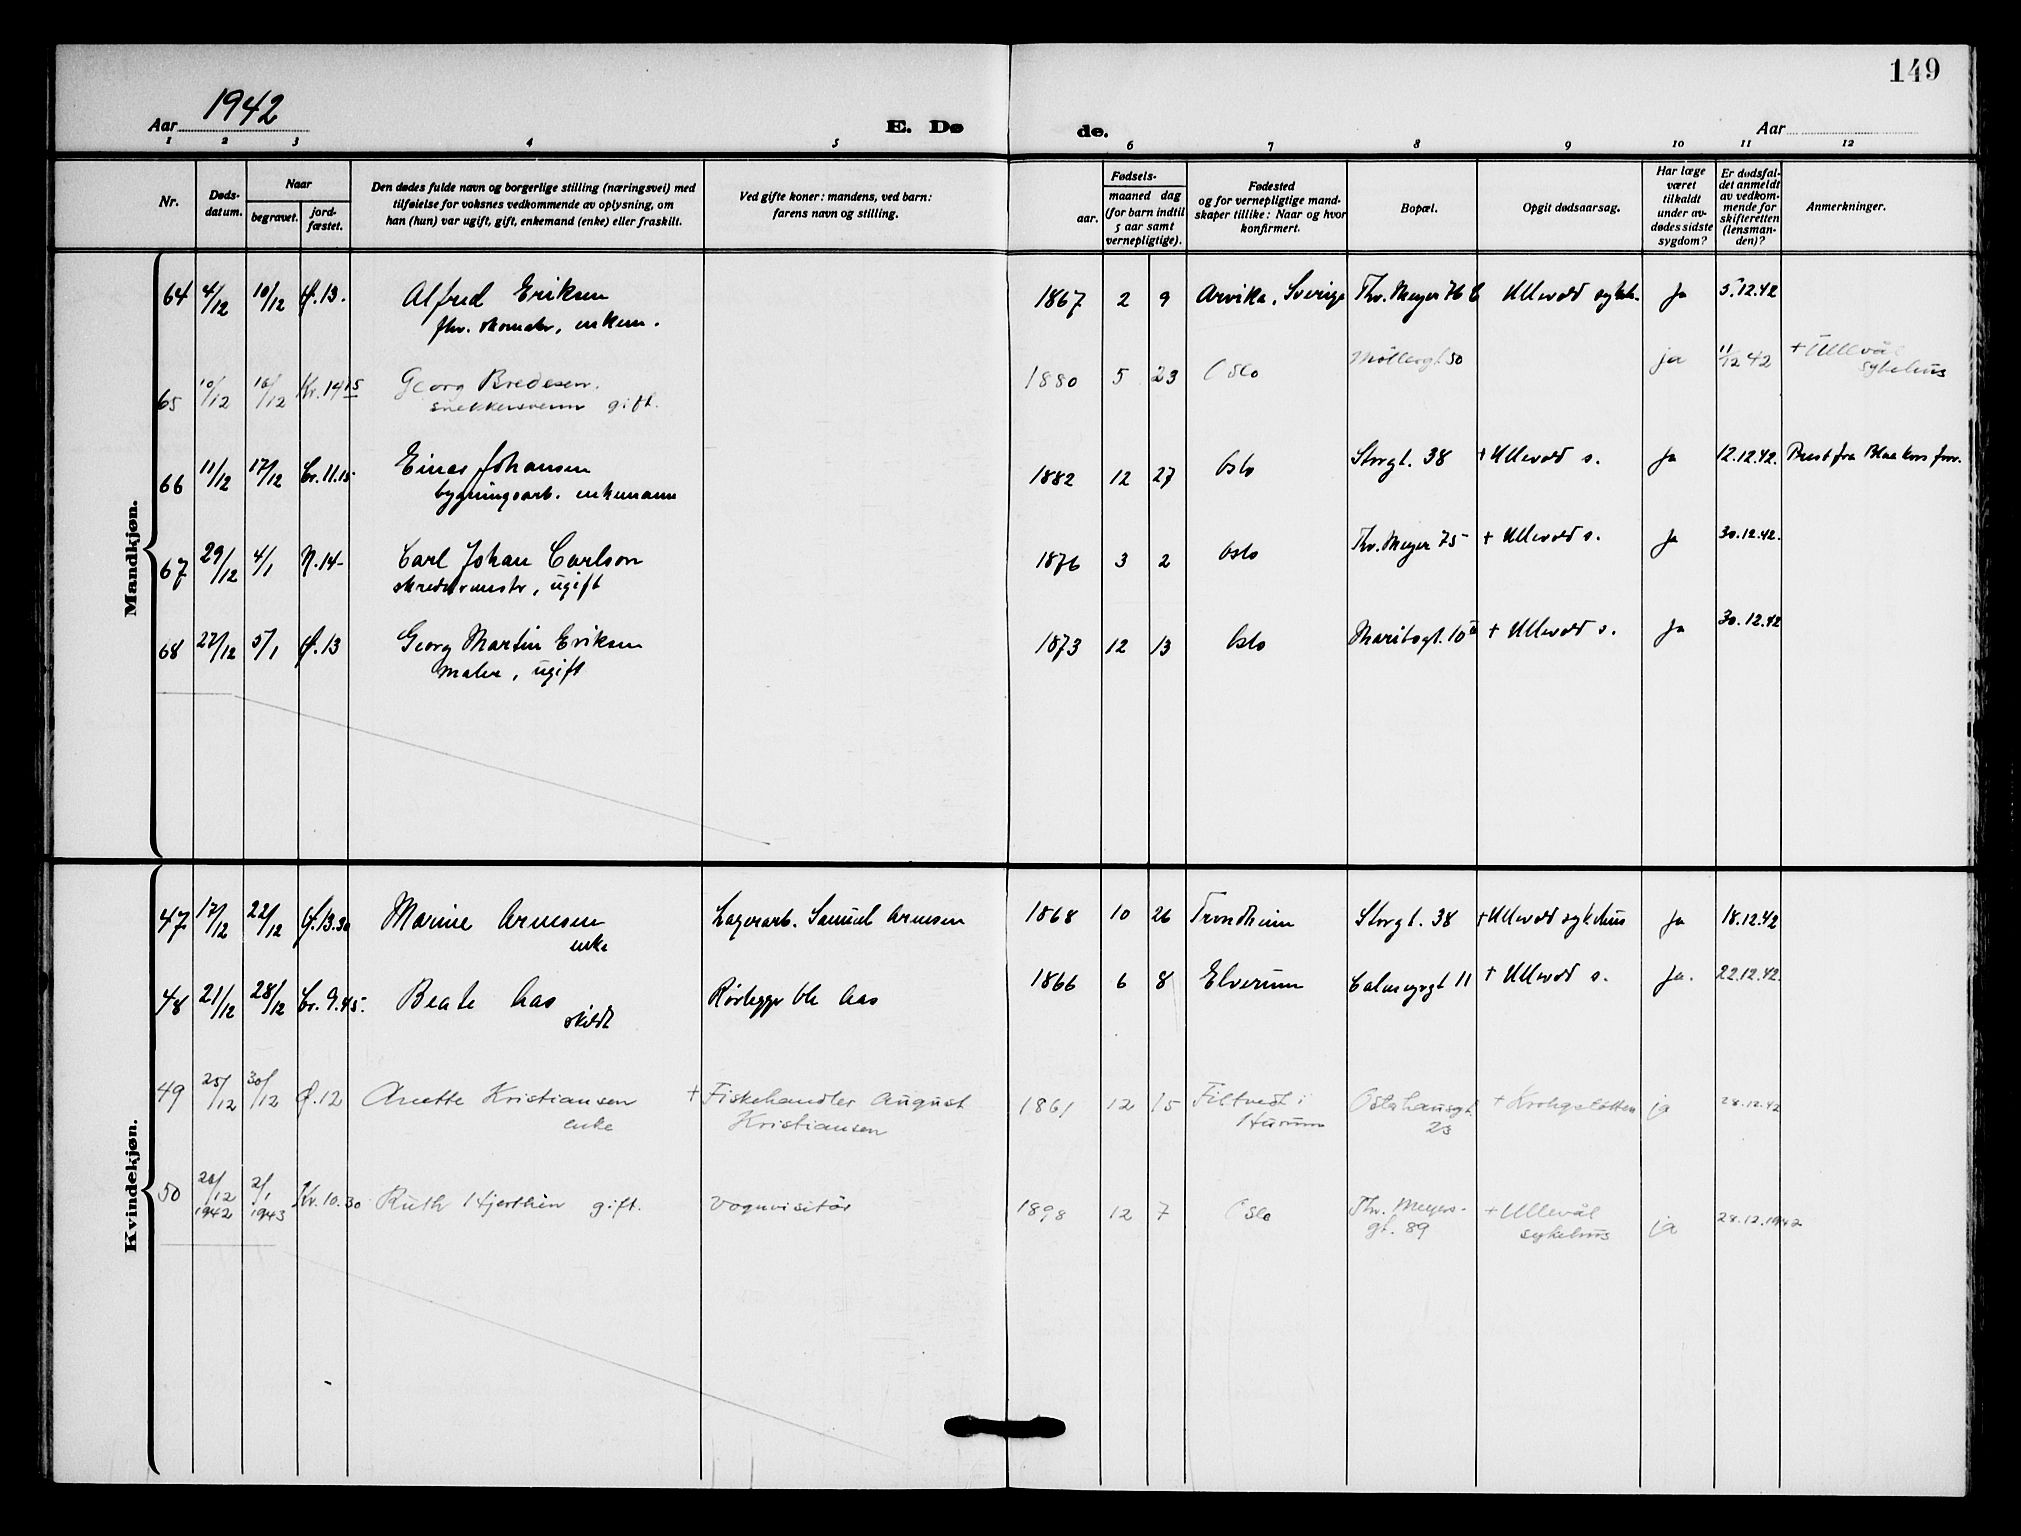 149
Aar 1942
E. Døde.
Aar
1 2 3 4 5 6 7 8 9 10 11 12
Nr.
Døds-
datum.
Naar
begravet.
jord-
fæstet.
Den dødes fulde navn og borgerlige stilling (næringsvei) med
tilføielse for voksnes vedkommende av oplysning, om
han (hun) var ugift, gift, enkemand (enke) eller fraskilt.
Ved gifte koner: mandens, ved barn:
farens navn og stilling.
Fødsels-
aar.
maaned dag
(for barn indtil
5 aar samt
vernepligtige).
Fødested
og for vernepligtige mand-
skaper tillike: Naar og hvor
konfirmert.
Bopæl.
Opgit dødsaarsag.
Har læge
været
tilkaldt
under av-
dødes sidste
sygdom?
Er dødsfal-
det anmeldt
av vedkom-
mende for
skifteretten
(lensman-
den)?
Anmerkninger.
Mandkjøn.
64 4/12 10/12 Ø.13. Alfred Eriksen 1867 2 9 Arvika, Sverige Thv. Meyer 76 Ullevål sykeh. ja 5.12.42
fhv. skomaker, enkem.
65 10/12 16/12 Kr. 14 15 Georg Bredesen. 1880 5 23 Oslo Møllergt. 50 ja 11/12 42 + Ullevål
snekkersvenn gift. sykehus
66 11/12 17/12 Cr. 11.15 Einar Johansen 1882 12 27 Oslo Storgt. 38 + Ullevål s. ja 12.12.42. Prest fra Blaa kors forr.
bygningsarb. enkemann
67 29/12 4/1 N.14- Carl Johan Carlson 1876 3 2 Oslo Thv. Meyer 75 + Ullevål s. ja 30.12.42.
skreddermstr, ugift
68 27/12 5/1 Ø.13 Georg Martin Eriksen 1873 12 13 Oslo Maritsgt. 10 + Ullevål s. ja 30.12.42
maler, ugift
Kvindekjøn.
47 17/12 22/12 Ø.13.30 Marine Arnesen Lagerarb. Samuel Arnesen 1868 10 26 Trondheim Storgt. 38 + Ullevål sykehus ja 18.12.42
enke
48 21/12 28/12 Cr. 9.45. Beate Aas Rørlegger Ole Aas 1866 6 8 Elverum Calmeyergt 11 + Ullevål s. ja. 22.12.42.
skildt
49 25/12 30/12 Ø.12 Anette Kristiansen + Fiskehandler August 1861 12 15 Filtvedt i Osterhausgt. + Krohgstøtten ja 28.12.42
enke Kristiansen Hurum 23
50 26/12 1942 2/1 1943 Kr. 10.30 Ruth Hjerthén gift. Vognvisitør 1898 12 7 Oslo Thv. Meyers- + Ullevål ja 28.12.1942
gt. 89 sykehus